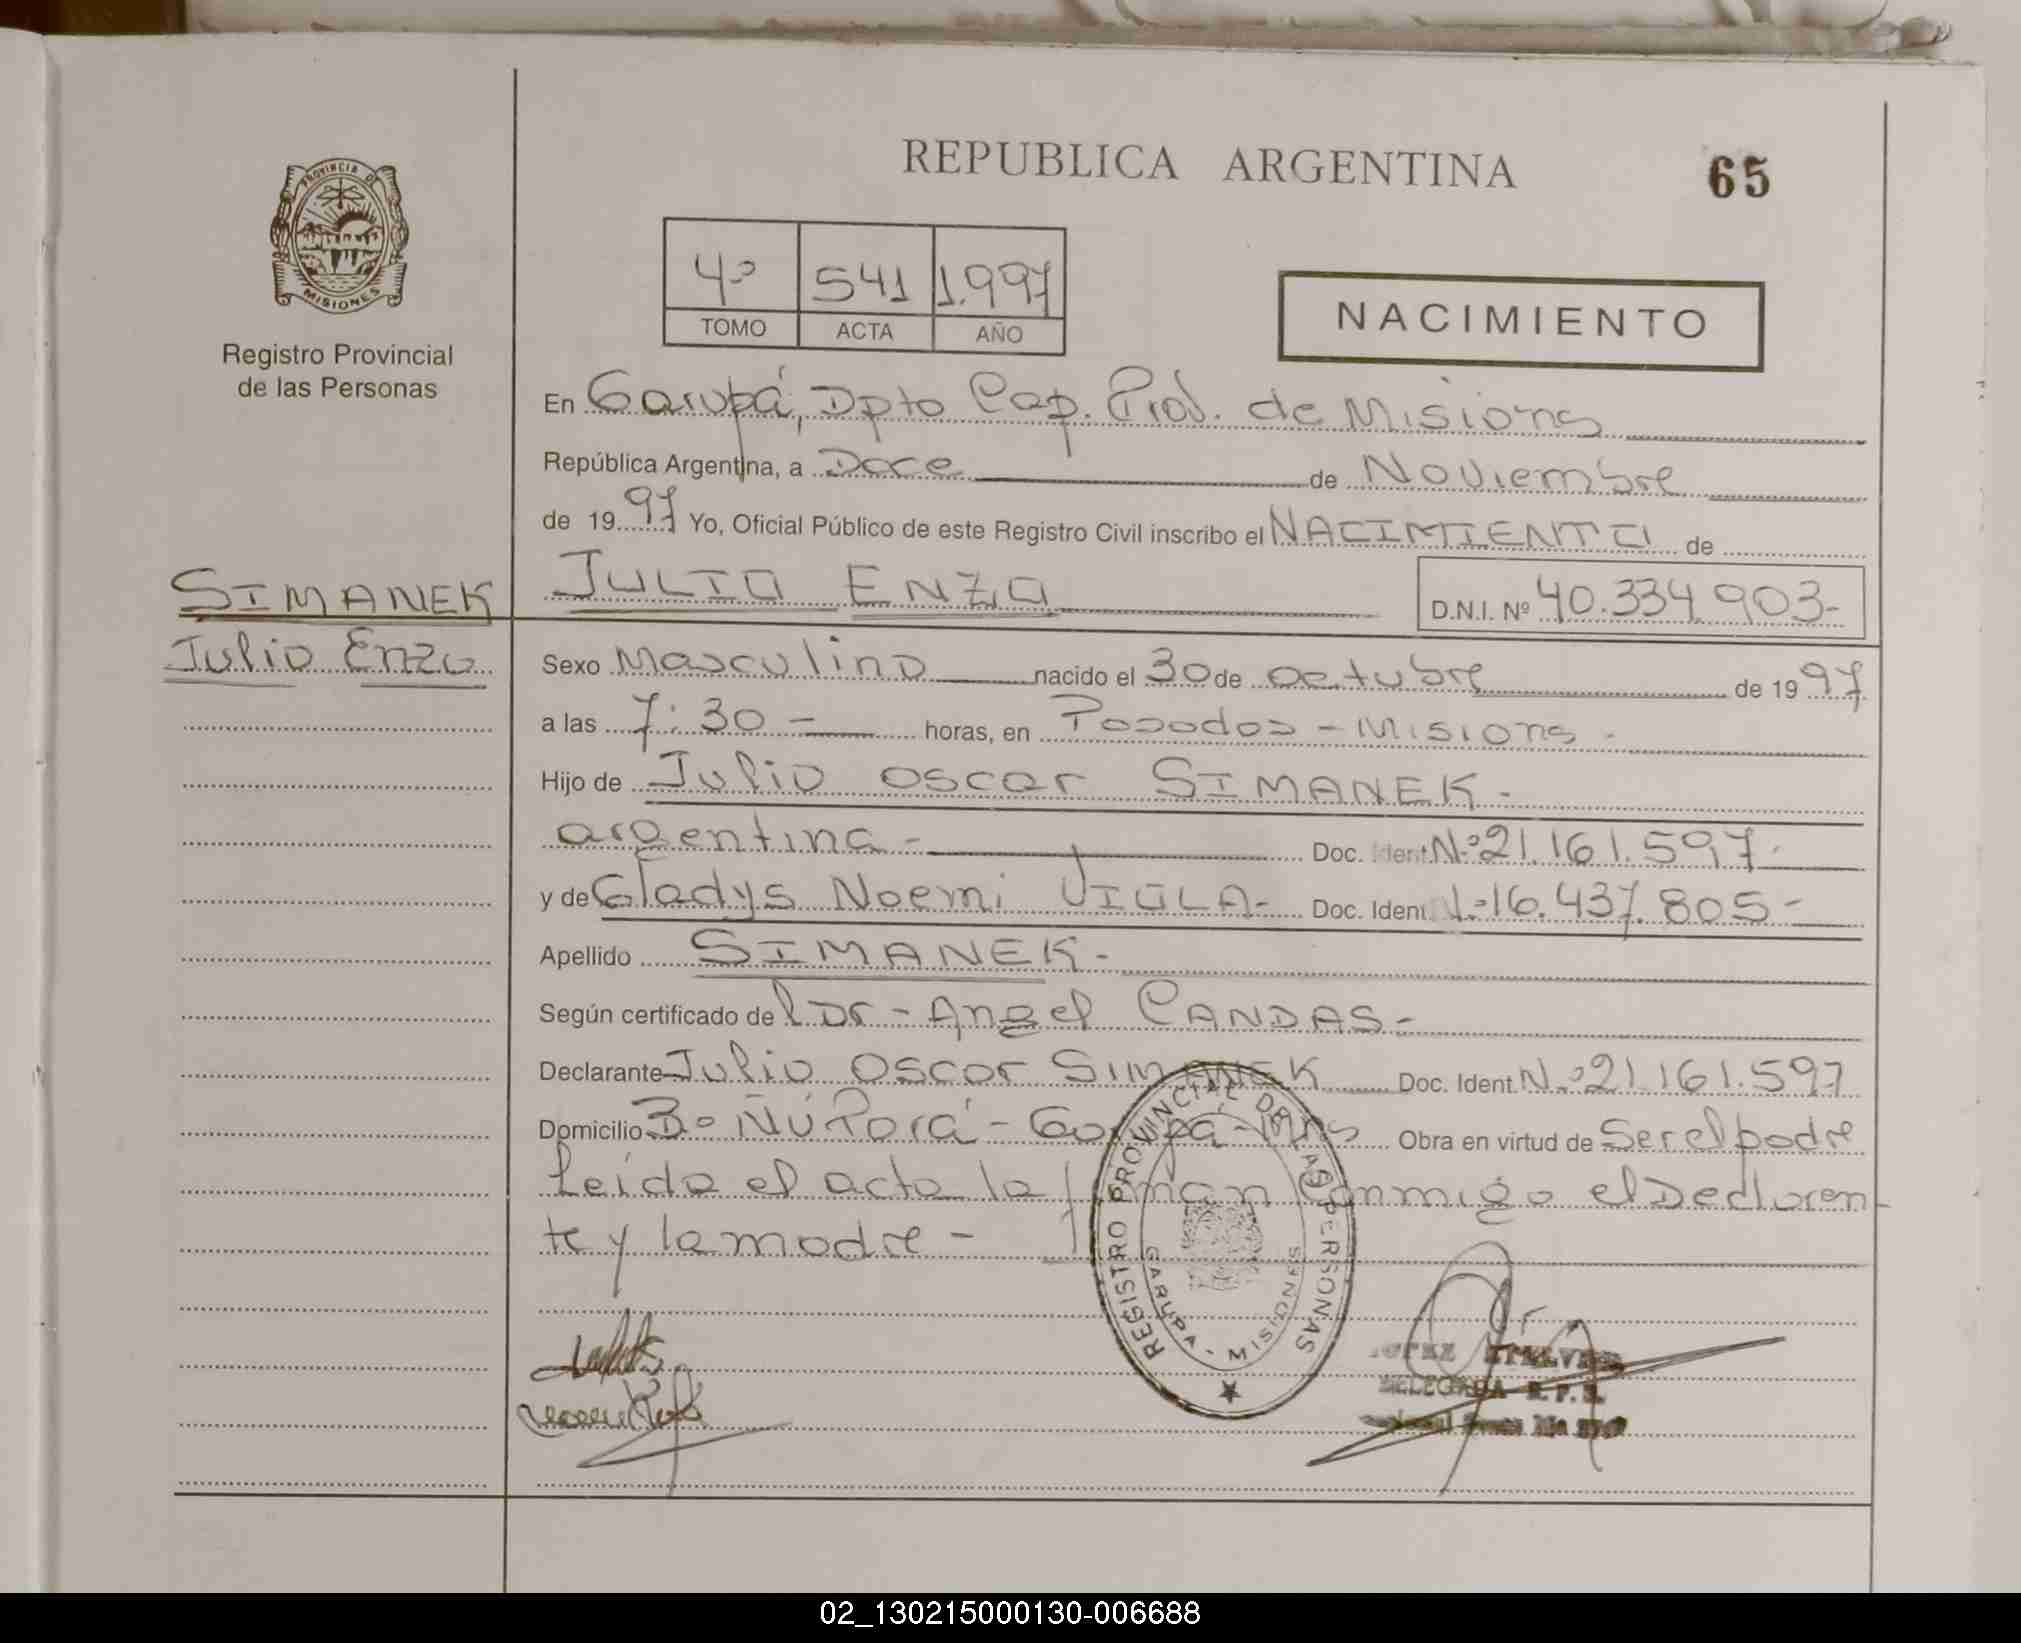 REPUBLICA ARGENTINA
65
PROVINCIA DE
MISIONES
Registro Provincial
de las Personas
4º 541 1.997
TOMO ACTA AÑO
NACIMIENTO
En Garupá, Dpto Cap. Prov. de Misiones
República Argentina, a Doce de Noviembre
de 1997 Yo, Oficial Público de este Registro Civil inscribo el NACIMIENTO de
SIMANEK
Julio Enzo
JULIO ENZO D.N.I. Nº 40.334.903-
Sexo Masculino nacido el 30 de octubre de 1997
a las 7:30 - horas, en Posadas - Misiones.
Hijo de Julio oscar SIMANEK -
argentina - Doc. Ident. Nº 21.161.597.
y de Gladys Noemi VIOLA - Doc. Ident. Nº 16.437.805 -
Apellido SIMANEK -
Según certificado del Dr - Angel CANDAS -
Declarante Julio oscar SIMANEK Doc. Ident. Nº 21.161.597
Domicilio Bº Ñú Porá - Garupá - Mns Obra en virtud de Ser el padre
Leída el acta la firman conmigo el Declaren-
te y la madre -
REGISTRO PROVINCIAL DE LAS PERSONAS
GARUPA - MISIONES
DELEGADA R.P.P.
02_130215000130-006688